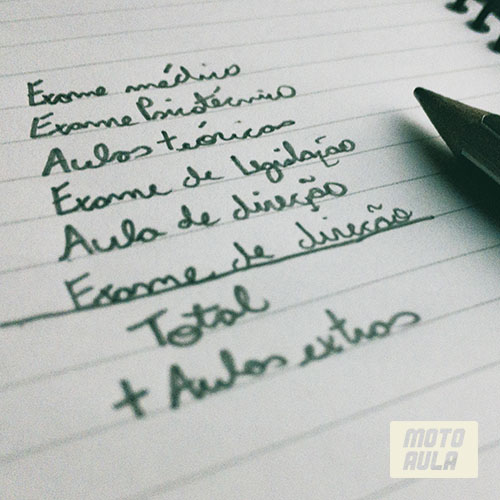 Exame médico
Exame Psicotécnico
Aulas teóricas
Exame de legislação
Aula de direção
Exame de direção
Total
+ Aulas extras
MOTO
AULA